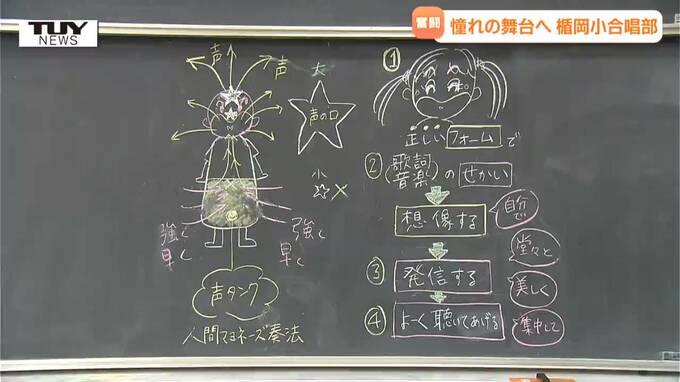 TUY
NEWS
奮闘
憧れの舞台へ 楯岡小合唱部
声
声
大
声の口
小
✕
強く
早く
強く
早く
声タンク
人間マヨネーズ奏法
①
正しいフォームで
②(歌詞
音楽)のせかい
想像する
自分で
堂々と
③発信する
美しく
④よーく聴いてあげる
集中して